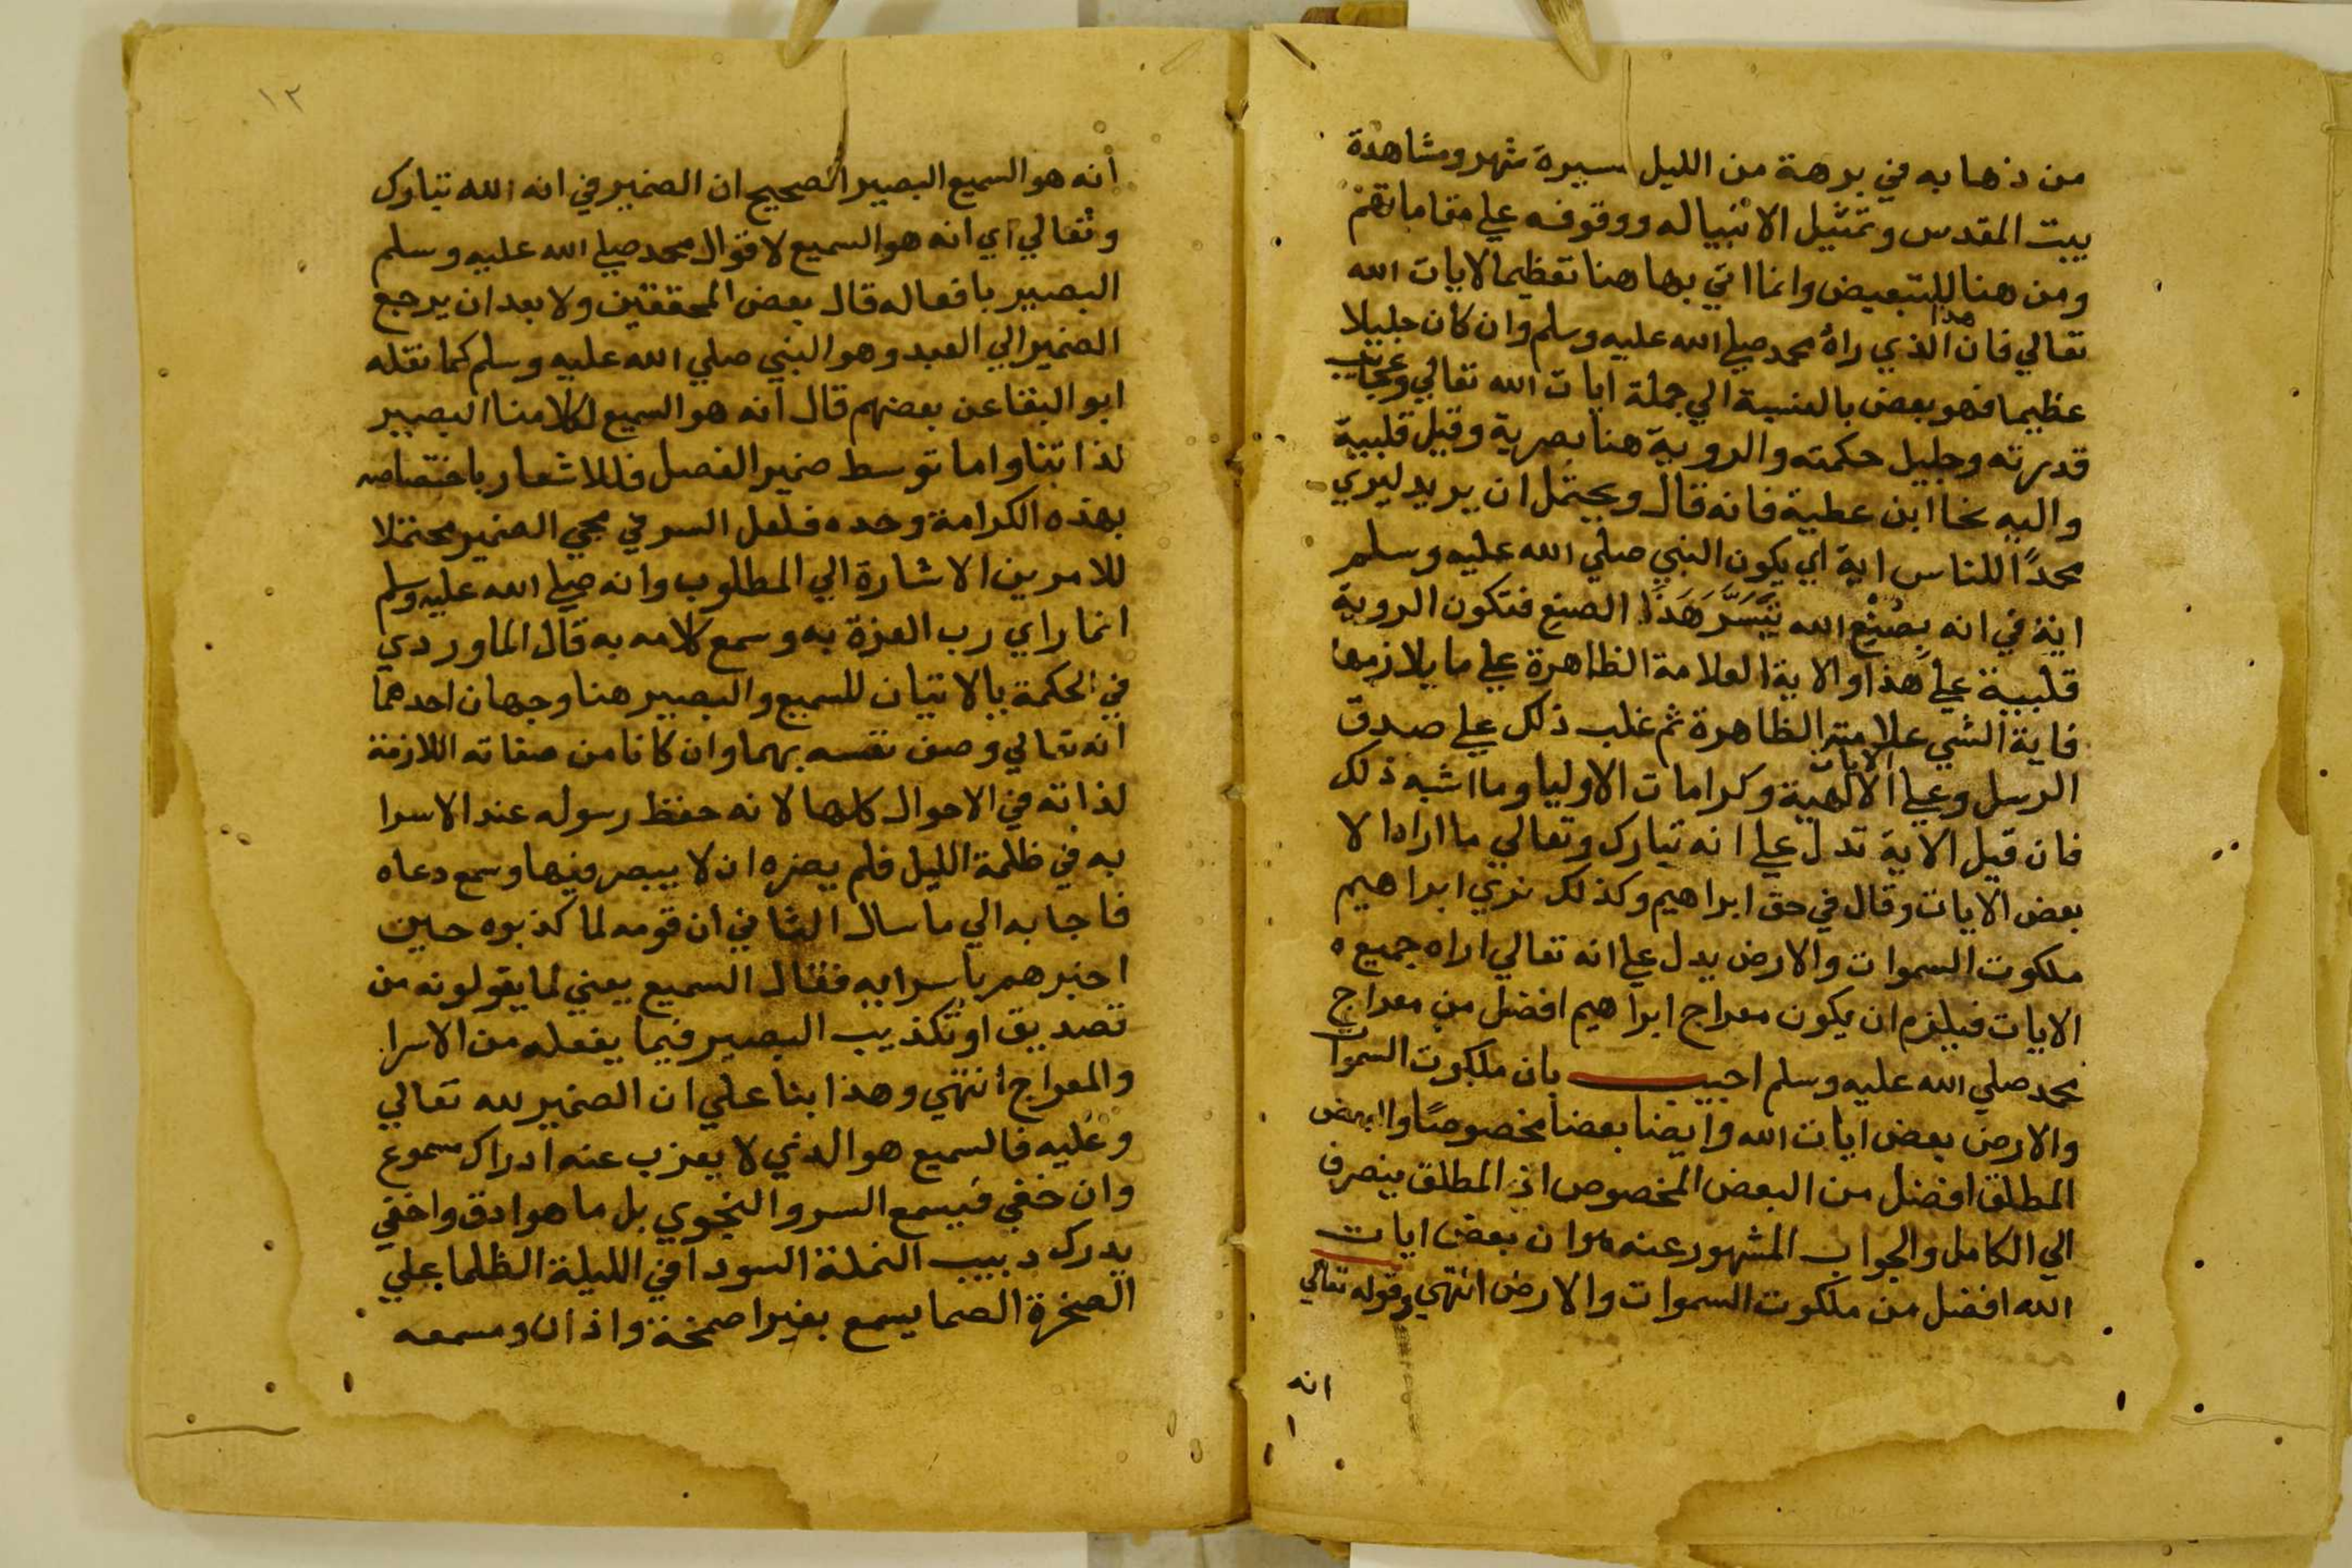 من ذهابه في برهة من الليل مسيرة شهر ومشاهدة
بيت المقدس وتمثيل الانبياله ووقوفه علي مقاماتهم
ومن هنا للتبعيض وانما اتي بها هنا تعظيما لايات الله
تعالي فان هذا الذي راه محمد صلي الله عليه وسلم وان كان جليلا
عظيما فهو بعض بالنسبة الي جملة ايات الله تعالي وعجايب
قدرته وجليل حكمته والروية هنا بصرية وقيل قلبية
واليه نحا ابن عطية فانه قال ويحتمل ان يريد ليري
محمدًا للناس اية اي يكون النبي صلي الله عليه وسلم
اية في انه بصُنْع الله ببَشَرٍ هَذَا الصنع فتكون الروية
قلبية علي هذا والاية العلامة الظاهرة علي ما يلازمها
فاية الشي علامته الظاهرة ثم غلب ذلك علي صدق
الرسل وعلي الايات الالهية وكرامات الاوليا وما اشبه ذلك
فان قيل الاية تدل علي انه تبارك وتعالي ما اراه الا
بعض الايات وقال في حق ابراهيم وكذلك نري ابراهيم
ملكوت السموات والارض يدل علي انه تعالي اراه جميع ه
الايات فيلزم ان يكون معراج ابراهيم افضل من معراج
محمد صلي الله عليه وسلم اجيب بان ملكوت السموات
والارض بعض ايات الله وايضا بعضا مخصوصًا والبعض
المطلق افضل من البعض المخصوص اذ المطلق ينصرف
الي الكامل والجواب المشهور عنه هو ان بعض ايات
الله افضل من ملكوت السموات والارض انتهي وقوله تعالي
انه
١٢
انه هو السميع البصير الصحيح ان الضمير في انه الله تبارك
وتعالي اي انه هو السميع لاقوال محمد صلي الله عليه وسلم
البصير بافعاله قال بعض المحققين ولا بعد ان يرجع
الضمير الي العبد وهو النبي صلي الله عليه وسلم كما نقله
ابو البقا عن بعضهم قال انه هو السميع لكلامنا البصير
لذاتنا واما توسط ضمير الفصل فللاشعار باختصاصه
بهذه الكرامة وحده فلعل السر في مجي الضمير محتملا
للامرين الاشارة الي المطلوب وانه صلي الله عليه وسلم
انما راي رب العزة به وسمع كلامه به قال الماوردي
في الحكمة بالاتيان للسميع والبصير هنا وجهان احدهما
انه تعالي وصف نفسه بهما وان كانا من صفاته اللازمة
لذاته في الاحوال كلها لانه حفظ رسوله عند الاسرا
به في ظلمة الليل فلم يضره ان لا يبصر فيها وسمع دعاه
فاجابه الي ما سال الثاني ان قومه لما كذبوه حين
اخبرهم باسرايه فقال السميع يعني لما يقولونه من
تصديق او تكذيب البصير فيما يفعله من الاسرا
والمعراج انتهي وهذا بنا علي ان الضمير لله تعالي
وعليه فالسميع هو الذي لا يعزب عنه ادراك مسموع
وان خفي فيسمع السر والنجوي بل ما هو ادق واخفي
يدرك دبيب النملة السودا في الليلة الظلما علي
الصخرة الصما يسمع بغير اصمخة واذان ومسمعه